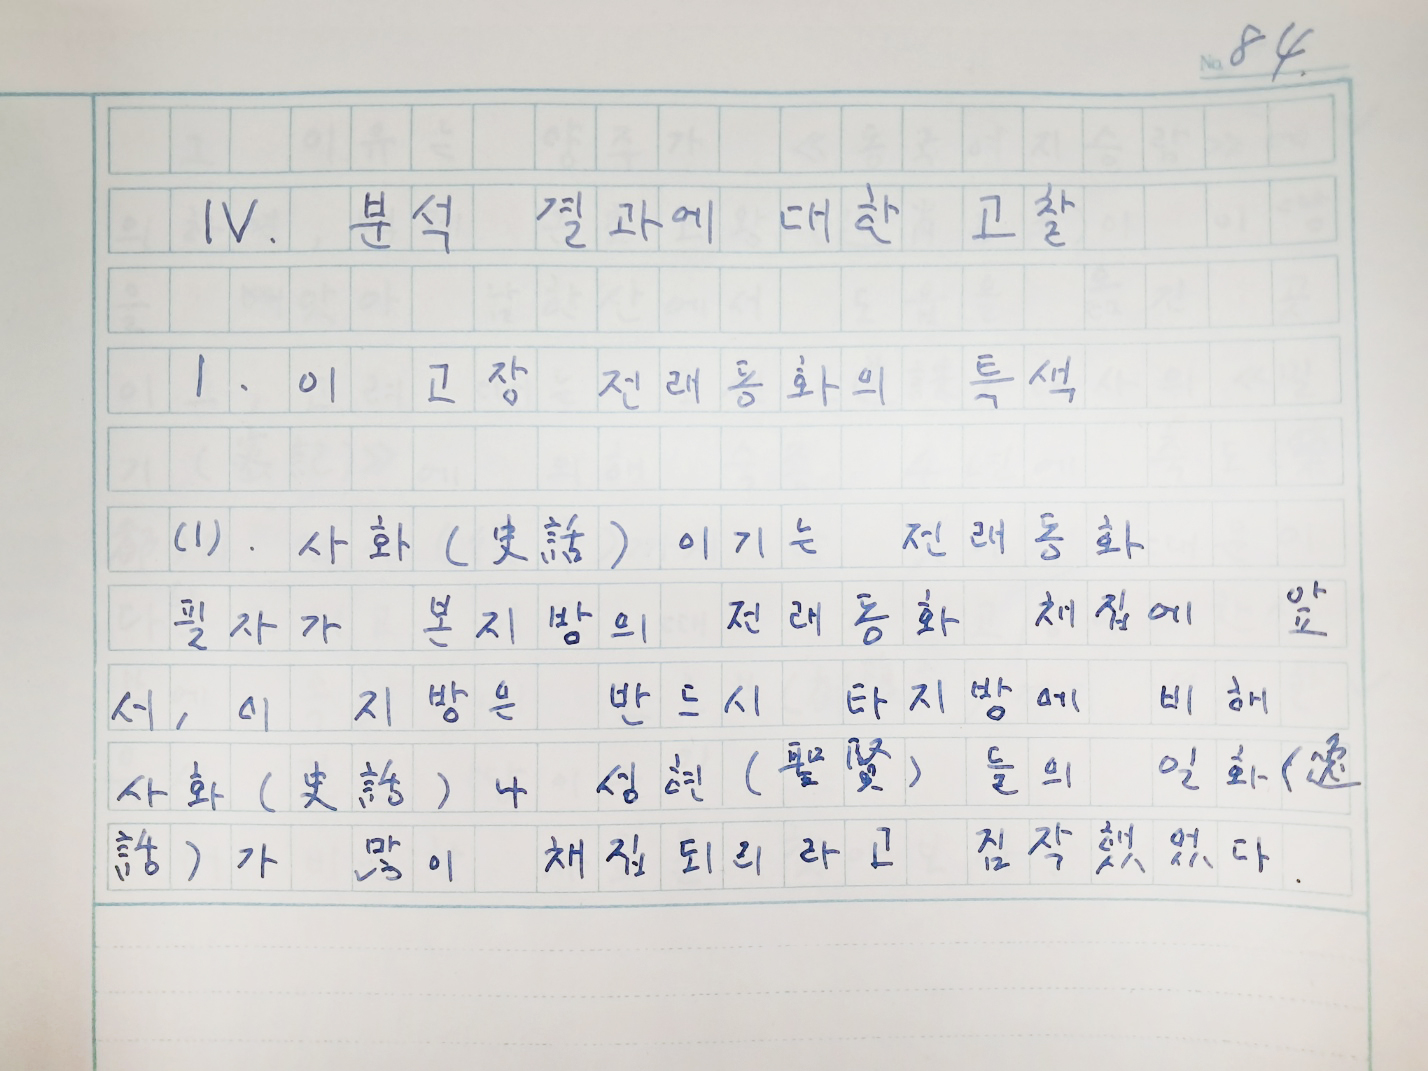 No. 84.
IV. 분석 결과에 대한 고찰
1. 이 고장 전래동화의 특색
(1). 사화(史話)이기는 전래동화
필자가 본지방의 전래동화 채집에 앞
서, 이 지방은 반드시 타지방에 비해
사화(史話)나 성현(聖賢)들의 일화(逸
話)가 많이 채집되리라고 짐작했었다.